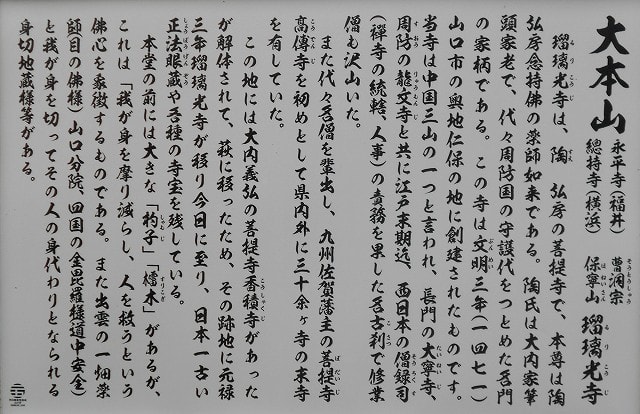 大本山
永平寺(福井)
總持寺(横浜)
曹洞宗
保寧山
瑠璃光寺
瑠璃光寺は、陶 弘房の菩提寺で、本尊は陶
弘房念持佛の薬師如来である。陶氏は大内家筆
頭家老で、代々周防国の守護代をつとめた名門
の家柄である。この寺は文明三年(一四七一)
山口市の奥地仁保の地に創建されたものです。
当寺は中国三山の一つと言われ、長門の大寧寺、
周防の龍文寺と共に江戸末期迄、西日本の僧録司
(禅寺の統轄、人事)の責務を果した名古刹で修業
僧も沢山いた。
また代々名僧を輩出し、九州佐賀藩主の菩提寺
高傳寺を初めとして県内外に三十余ヶ寺の末寺
を有していた。
この地には大内義弘の菩提寺香積寺があった
が解体されて、萩に移ったため、その跡地に元禄
三年瑠璃光寺が移り今日に至り、日本一古い
正法眼蔵や各種の寺宝を残している。
本堂の前には大きな「杓子」「擂木」があるが、
これは「我が身を摩り減らし、人を救うという
佛心を象徴するものである。また出雲の一畑薬
師(目の佛様)山口分院、四国の金毘羅様道中安全)
と我が身を切ってその人の身代わりとなられる
身切地蔵様等がある。